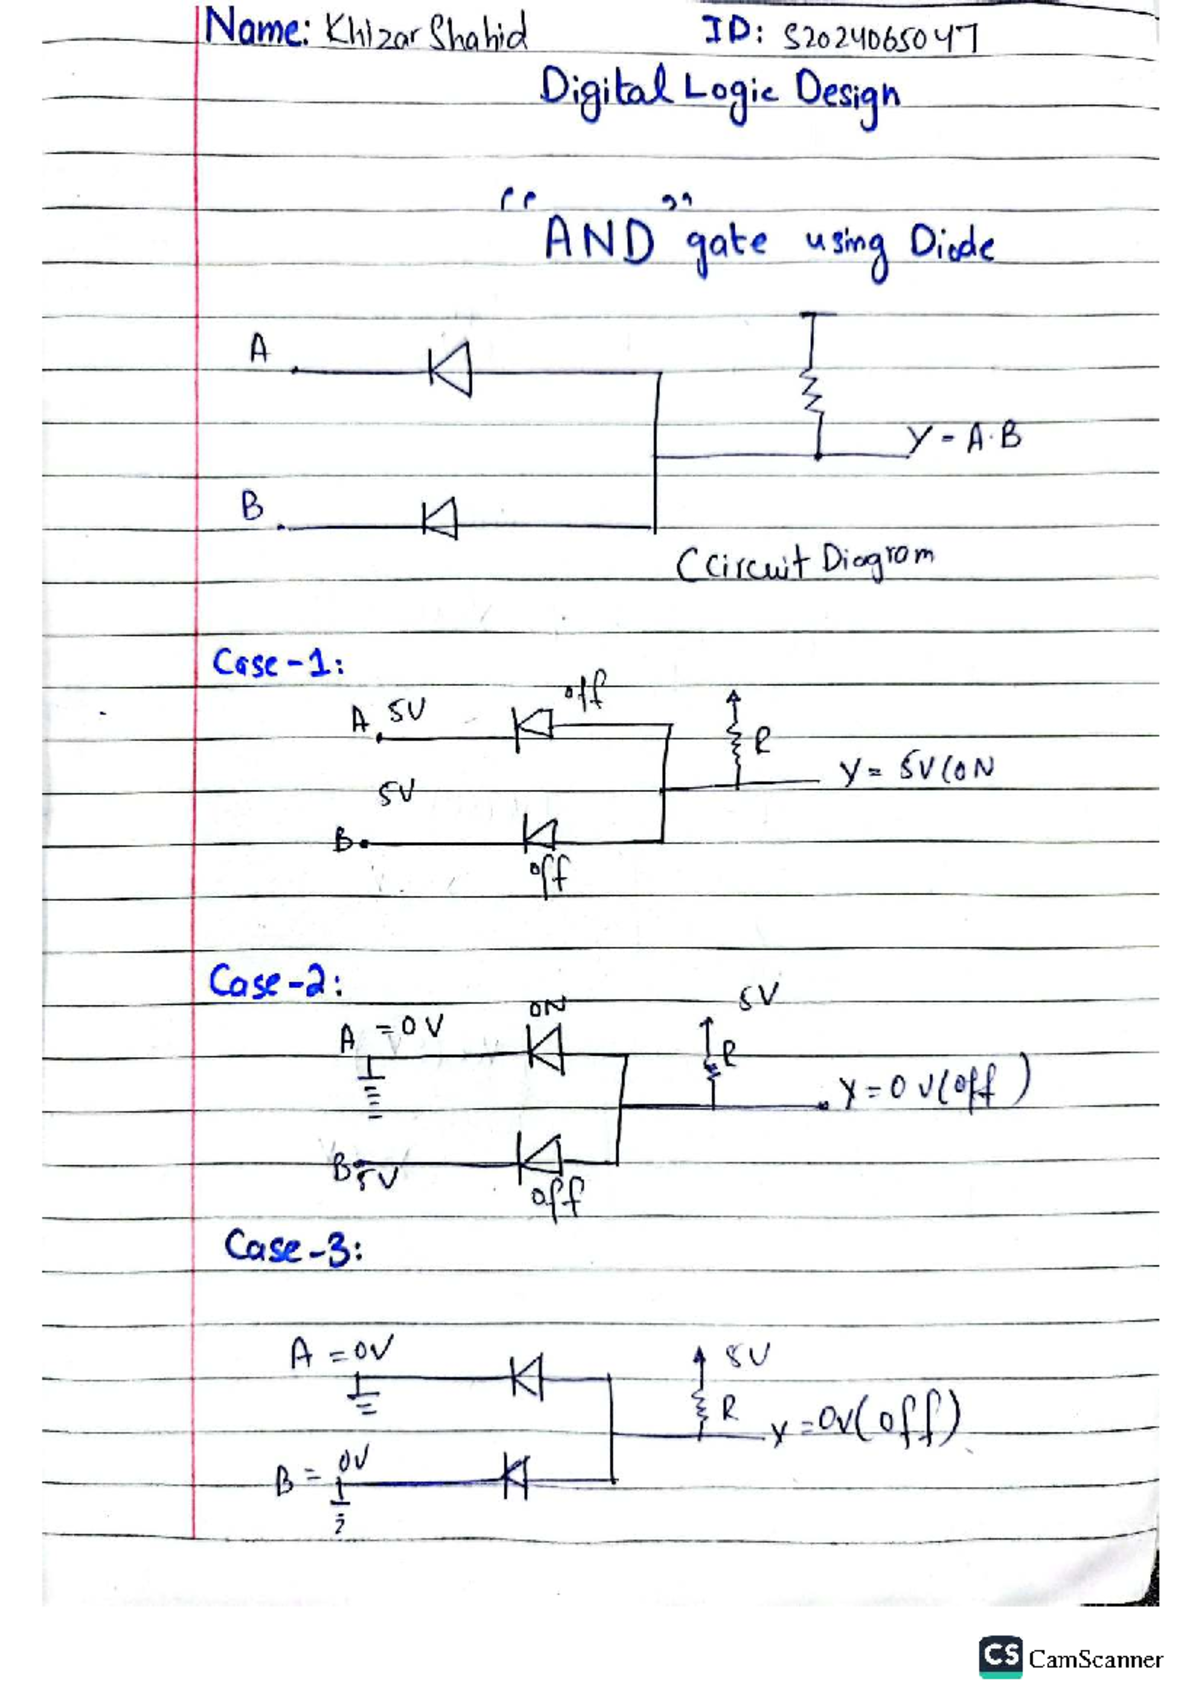 Name: Khizar Shahid ID: S2024065047
Digital Logic Design
“AND” gate using Diode
A
Y = A·B
B
(Circuit Diagram
Case-1:
off
A 5V
R
Y = 5V(ON
5V
B
off
Case-2:
5V
ON
A = 0V
R
Y = 0V(off)
B 5V
off
Case-3:
A = 0V
5V
R
Y = 0V(off)
B = 0V
CS CamScanner